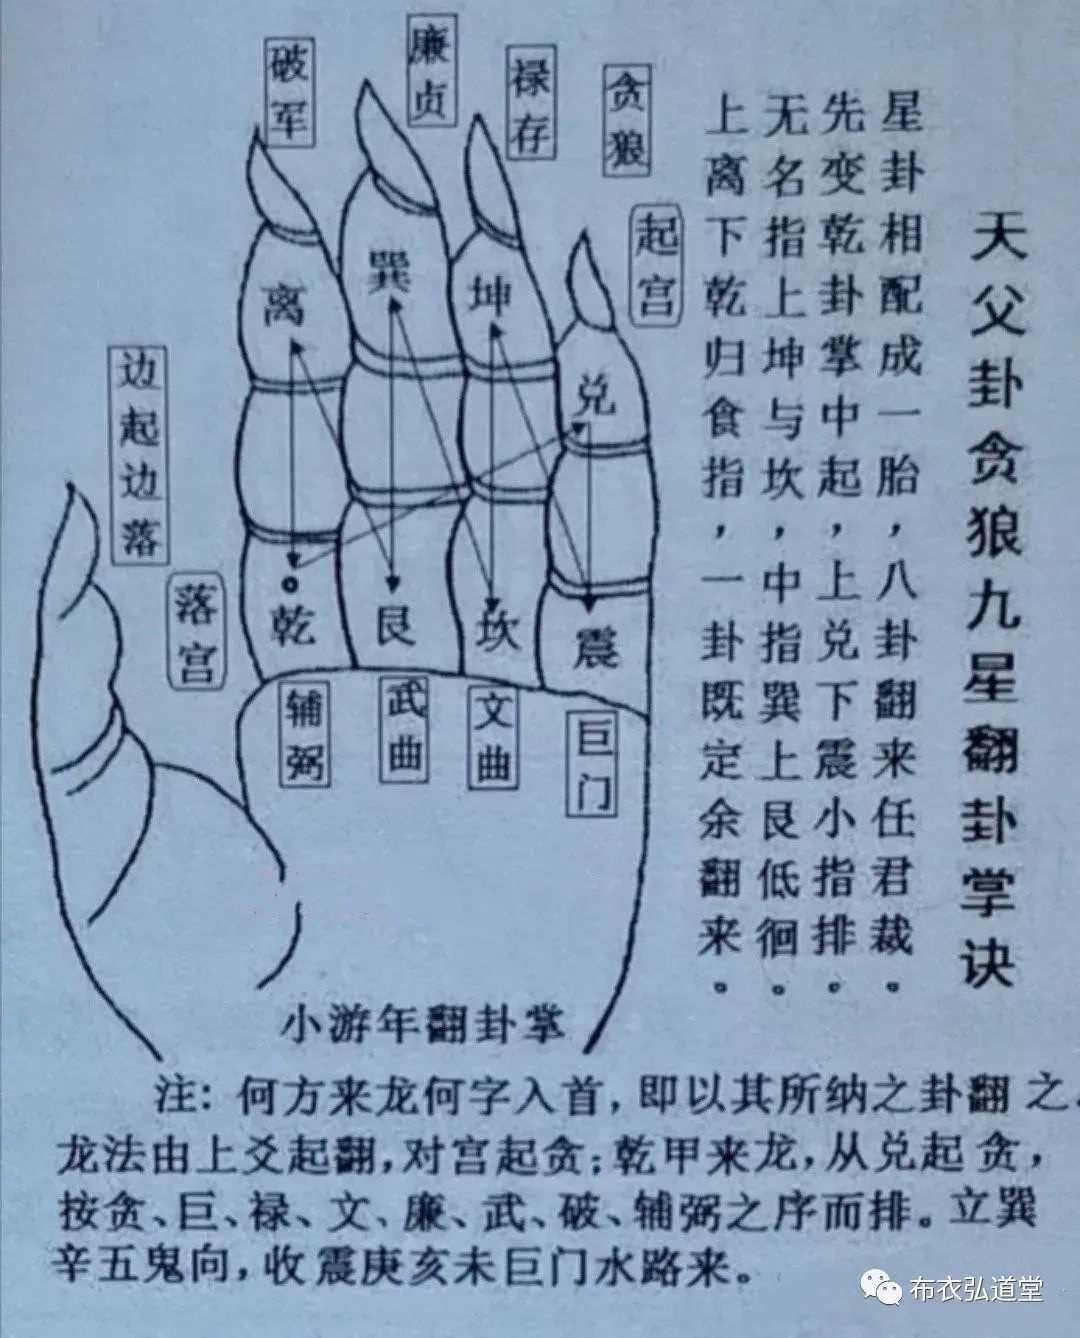 天父卦贪狼九星翻卦掌诀
星卦相配成一胎，八卦翻来任君裁。
先变乾卦掌中起，上兑下震小指排。
无名指上坤与坎，中指巽上艮低徊。
上离下乾归食指，一卦既定余翻来。
破军
廉贞
禄存
贪狼
起宫
离
巽
坤
兑
边起边落
落宫
乾
艮
坎
震
辅弼
武曲
文曲
巨门
小游年翻卦掌
注：何方来龙何字入首，即以其所纳之卦翻之。
龙法由上爻起翻，对宫起贪；乾甲来龙，从兑起贪，
按贪、巨、禄、文、廉、武、破、辅弼之序而排。立巽
辛五鬼向，收震庚亥未巨门水路来。
布衣弘道堂